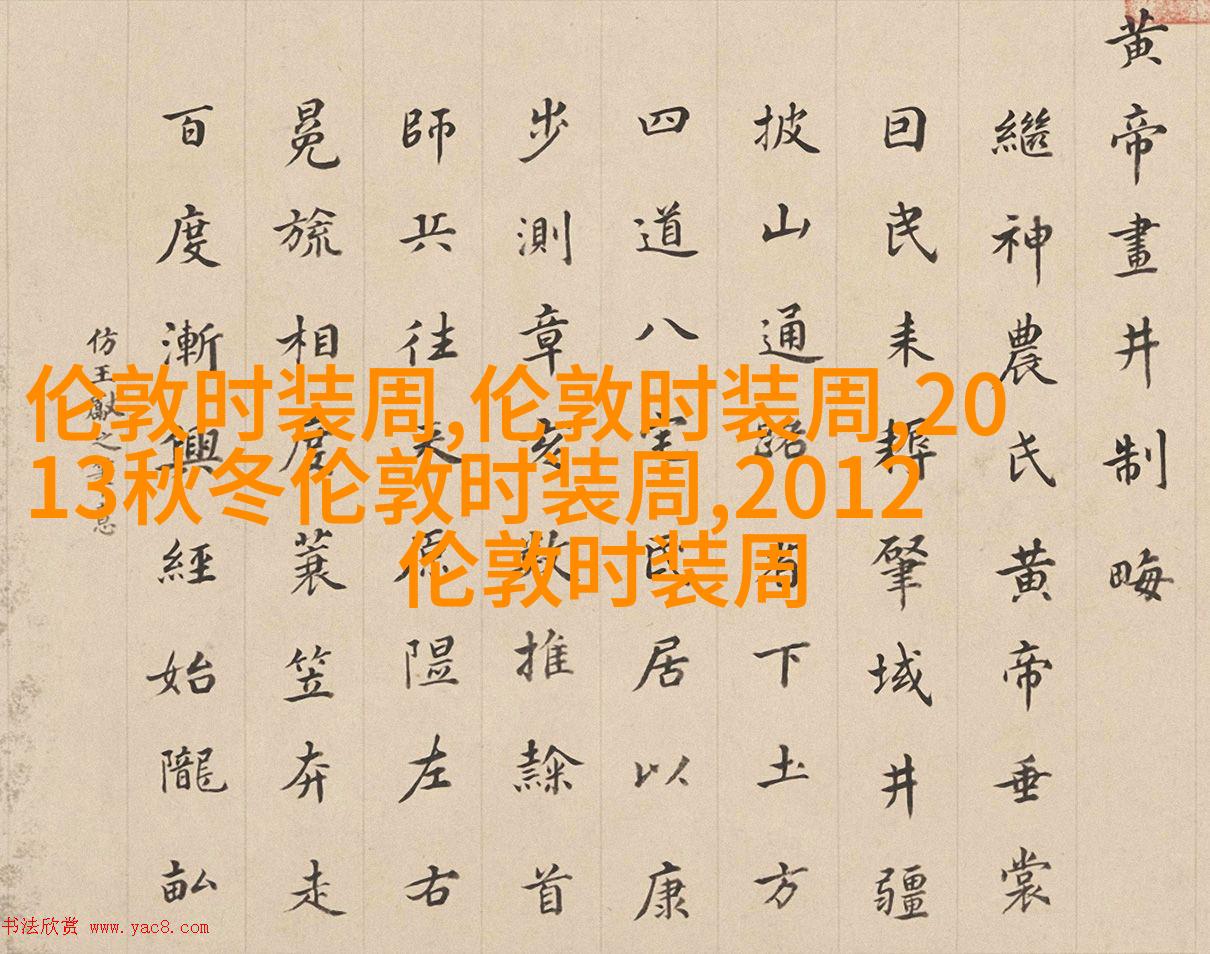 黄帝畫井制畮
繼神農氏黄帝垂裳
囙民耒耨肇域井疆
披山通路下土方
四道八宅民居以康
步測章亥數推隷首
師兵往来原隰左右
冕旒相度蓑笠奔走
百度漸興經始隴畝
仿王獻之
伦敦时装周,伦敦时装周,20
13秋冬伦敦时装周,2012
伦敦时装周
书法欣赏 www.yac8.com